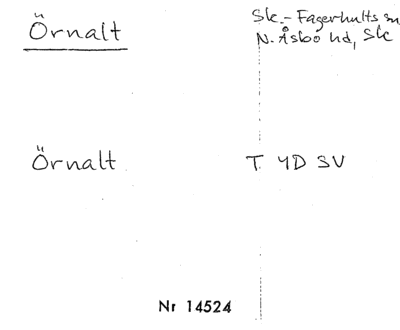 Örnalt
Sk.-Fagerhults sn
N. Åsbo hd, Sk
Örnalt
T. 4D SV
Nr 14524